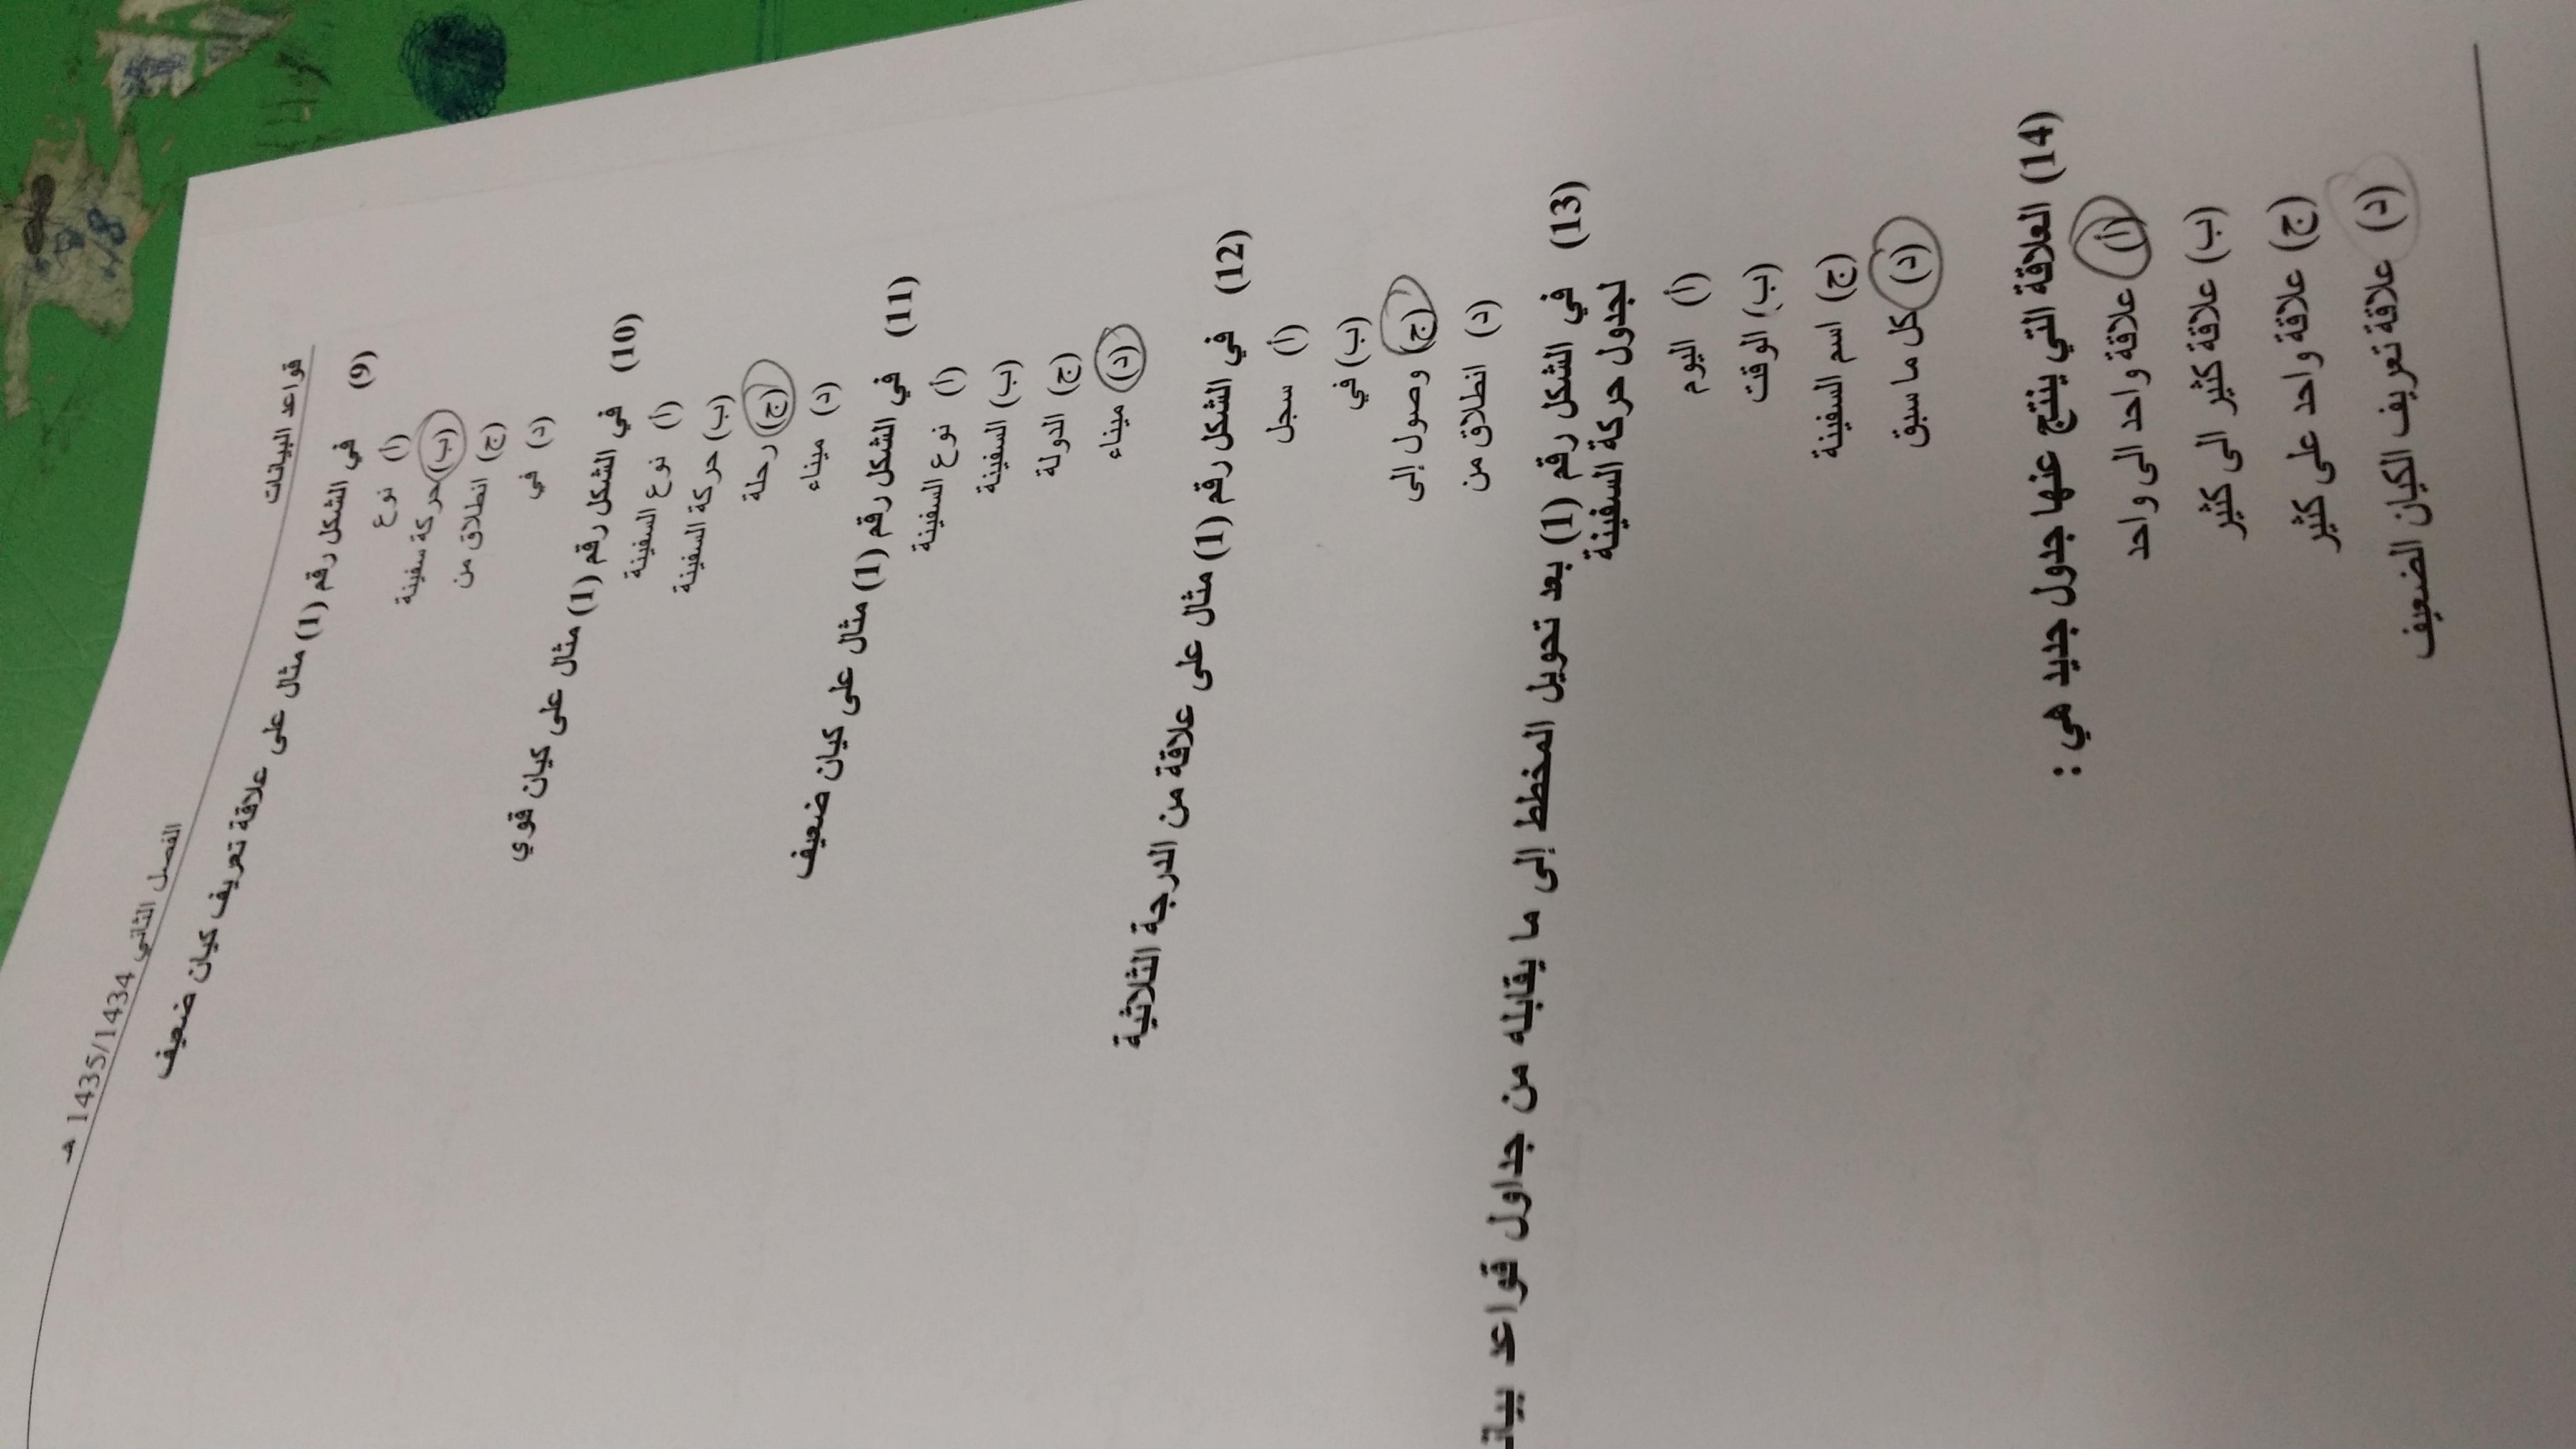 قواعد البيانات
الفصل الثاني 1435/1434 هـ
(9) في الشكل رقم (1) مثال على علاقة تعريف كيان ضعيف
(أ) نوع
(ب) حركة سفينة
(ج) انطلاق من
(د) في
(10) في الشكل رقم (1) مثال على كيان قوي
(أ) نوع السفينة
(ب) حركة السفينة
(ج) رحلة
(د) ميناء
(11) في الشكل رقم (1) مثال على كيان ضعيف
(أ) نوع السفينة
(ب) السفينة
(ج) الدولة
(د) ميناء
(12) في الشكل رقم (1) مثال على علاقة من الدرجة الثلاثية
(أ) سجل
(ب) في
(ج) وصول إلى
(د) انطلاق من
(13) في الشكل رقم (1) بعد تحويل المخطط إلى ما يقابله من جداول قواعد
لجدول حركة السفينة
(أ) اليوم
(ب) الوقت
(ج) اسم السفينة
(د) كل ما سبق
(14) العلاقة التي ينتج عنها جدول جديد هي :
(أ) علاقة واحد الى واحد
(ب) علاقة كثير الى كثير
(ج) علاقة واحد على كثير
(د) علاقة تعريف الكيان الضعيف